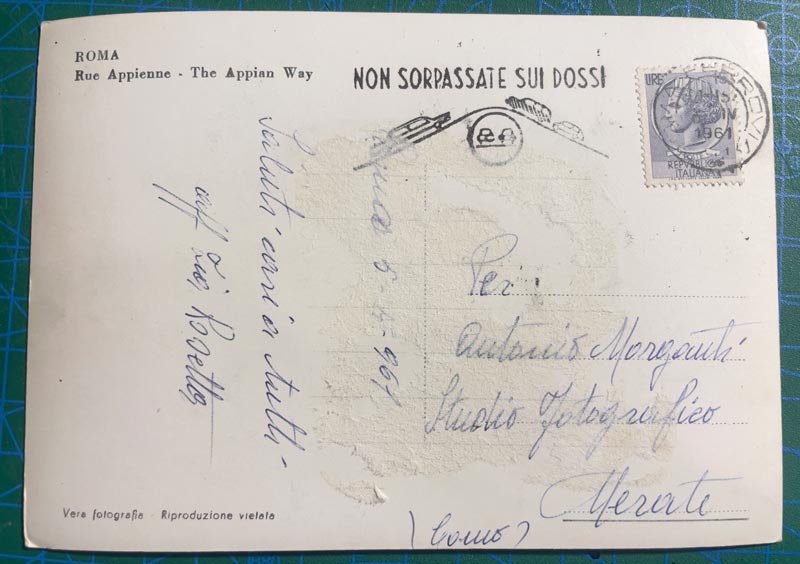 ROMA
Rue Appienne - The Appian Way
NON SORPASSATE SUI DOSSI
LIRE
FERROVIA
IV
1961
REPVBBLICA
ITALIANA
Roma 5-4-961
Saluti cari a tutti -
aff Zia Rosetta
Per
Antonio Morganti
Studio Fotografico
Merate
(Como)
Vera fotografia - Riproduzione vietata